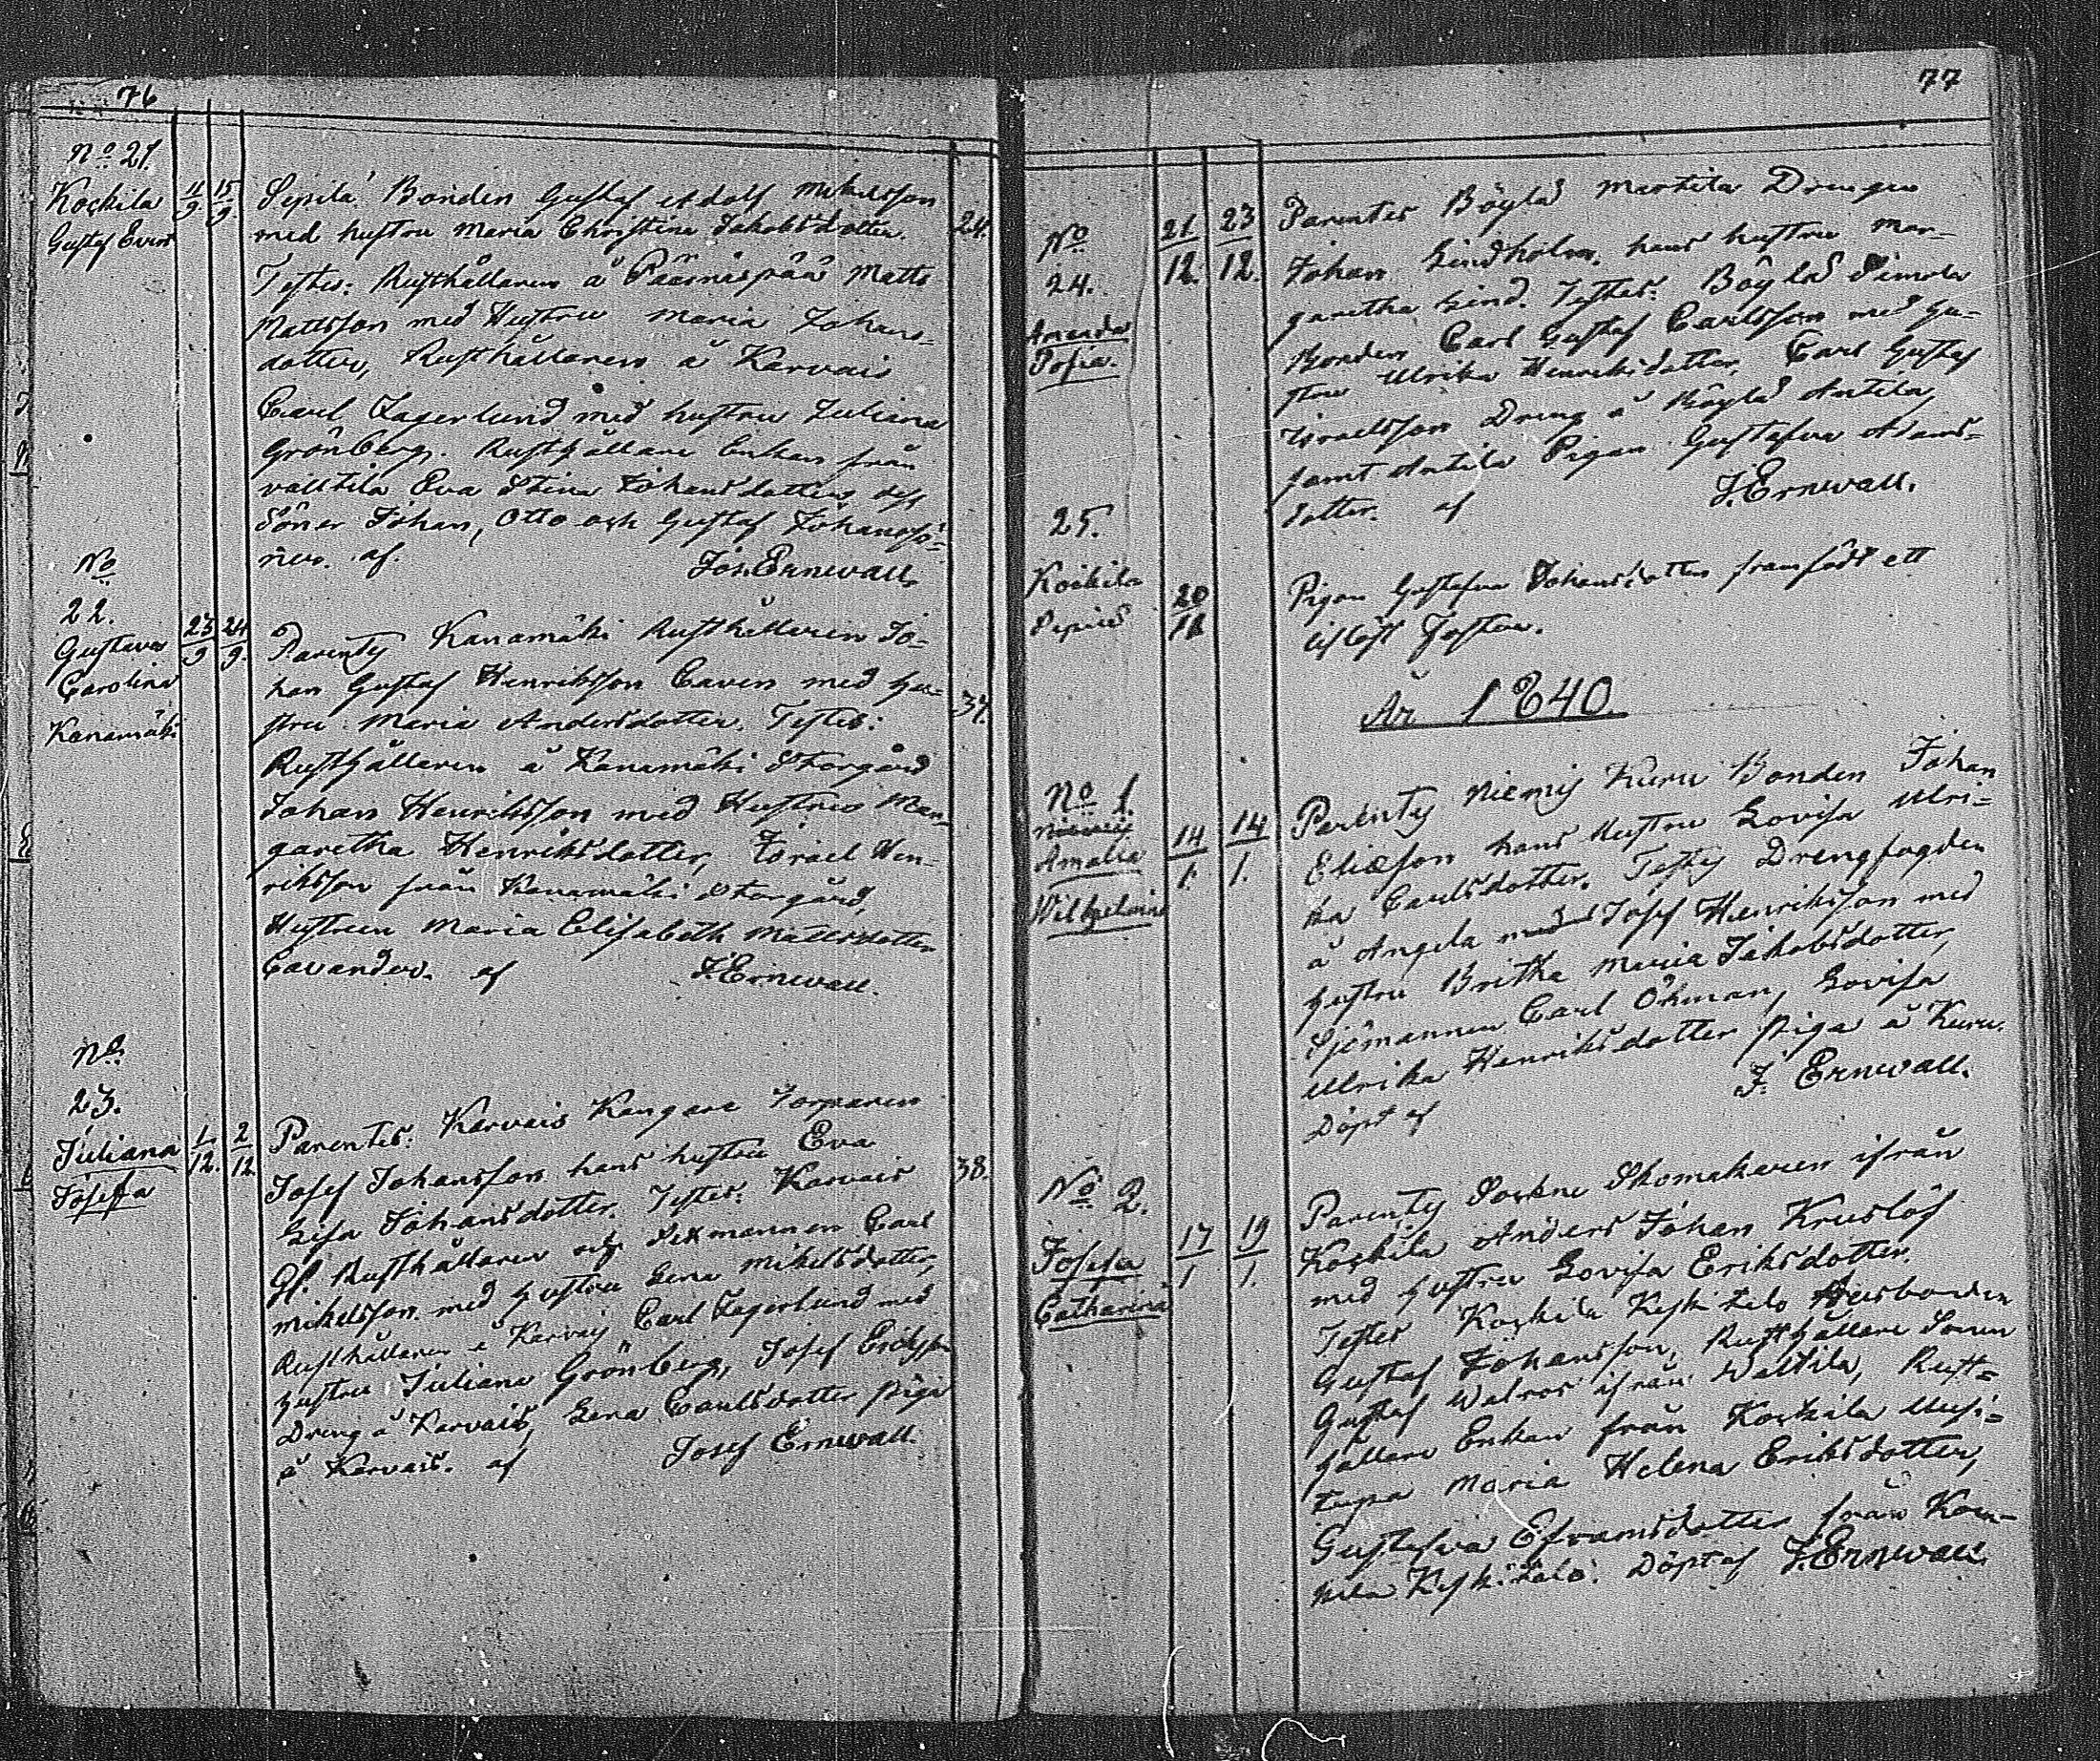 76
No 21.
Koskila
Gustaf Evert
11/9 15/9
Sepilä Bonden Gustaf Adolf Mikelsson
med hustru Maria Christina Jakobsdotter.
24.
Testes: Rusthållaren å Päärnäspää Matts
Mattsson med Hustru Maria Johans-
dotter, Rusthållaren å Karvais
Carl Lagerlund med hustru Juliana
Grönberg. Rusthållare Enkan från
valttila Eva Stina Johansdotter, dess
Söner Johan, Otto och Gustaf Johansso-
ner. af. Jos. Ernwall.
No
22.
Gustava
Carolina
Kanamäki
23/9 24/9.
Parentes Kanamäki Rusthållaren Jo-
han Gustaf Henriksson Caven med hu-
stru Maria Andersdotter. Testes:
37.
Rusthållaren å Kanamäki Storgård
Johan Henriksson med Hustru Mar-
garetha Henriksdotter, Israel Hen-
riksson från Kanamäki Storgård,
Hustrun Maria Elisabeth Mattsdotter
Cavander. af J. Ernwall.
No
23.
Juliana
Josefa
1/12. 2/12
Parentes: Karvais Kangare Torparen
Josef Johansson hans hustru Eva
Lisa Johansdotter. Testes: Karvais
38.
Gl. Rusthållaren och Sexmannen Carl
Mikelsson med hustru Lena Mikelsdotter,
Rusthållaren å Karvais Carl Lagerlund med
hustru Juliana Grönberg, Josef Eriksson
Dreng å Karvais, Lena Carlsdotter piga
å Karvais. af Josef Ernwall.
77
No
24.
Amanda
Sofia.
21/12. 23/12.
Parentes Böylä Martila Drengen
Johan Lindholm, hans hustru Mar-
garetha Lind. Testes: Böylä Simola
Bonden Carl Gustaf Carlsson med hu-
stru Ulrika Henriksdotter, Carl Gustaf
Israelsson Dreng å Böylä Antila,
samt Antila Pigan Gustafva Adams-
dotter. af J. Ernwall.
25.
Koskila
20/11
Pigan Gustafva Johansdotter framfödt ett
liflöst foster.
År 1840.
No 1.
Amalia
Wilhelmina
14/1. 14/1.
Parentes Niemis Kuru Bonden Johan
Eliæson hans Hustru Lovisa Ulri-
ka Carlsdotter. Testes Drengfogden
å Angela med Josef Henriksson med
hustru Britha Maria Jakobsdotter,
Sjömannen Carl Öhman, Lovisa
Ulrika Henriksdotter piga å Kuru.
Döpt af J. Ernwall.
No 2.
Josefa
Catharina
17/1 19/1.
Parentes Sockne Skomakaren ifrån
Koskila Anders Johan Kruslöf
med hustru Lovisa Eriksdotter.
Testes Koskila Keskitalo Husbonden
Gustaf Johansson, Rusthållare Sonen
Gustaf Walros ifrån Waltila, Rust-
hållare Enkan från Koskila Uusi-
tupa Maria Helena Eriksdotter,
Gustafva Eframsdotter från Kos-
kila Keskitalo. Döpt af J. Ernwall.